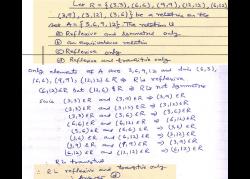 Let R = {(3,3), (6,6), (9,9), (12,12), (6,12)
(3,9), (3,12), (3,6)} be a relation on the
set A = {3,6,9,12}. The relation is
(a) Reflexive and symmetric only
(b) an equivalence relation
(c) Reflexive only
(d) Reflexive and transitive only
Only elements of A are 3,6,9,12 and since (3,3),
(6,6), (9,9), (12,12) ∈ R ∴ R is reflexive
(6,12) ∈ R but (12,6) ∉ R ∴ R is not symmetric
Since (3,3) ∈ R and (3,9) ∈ R ⇒ (3,9) ∈ R
(3,3) ∈ R and (3,12) ∈ R ⇒ (3,12) ∈ R
(3,3) ∈ R and (3,6) ∈ R ⇒ (3,6) ∈ R
(6,6) ∈ R and (6,12) ∈ R ⇒ (6,12) ∈ R
(3,6) ∈ R and (6,6) ∈ R ⇒ (3,6) ∈ R
(3,6) ∈ R and (6,12) ∈ R ⇒ (3,12) ∈ R
(3,9) ∈ R and (9,9) ∈ R ⇒ (3,9) ∈ R
(6,12) ∈ R and (12,12) ∈ R ⇒ (6,12) ∈ R
∴ R is transitive
∴ R is reflexive and transitive only